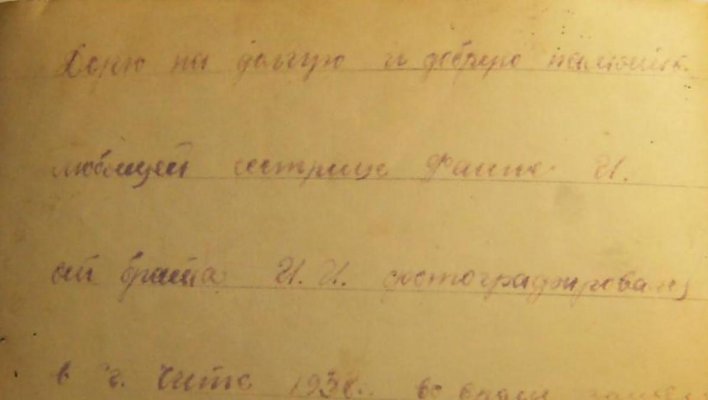 Дарю на долгую и добрую память
любящей сестрице Фаине И.
от брата И.И. фотографировался
в г. Чите 193 г. во время